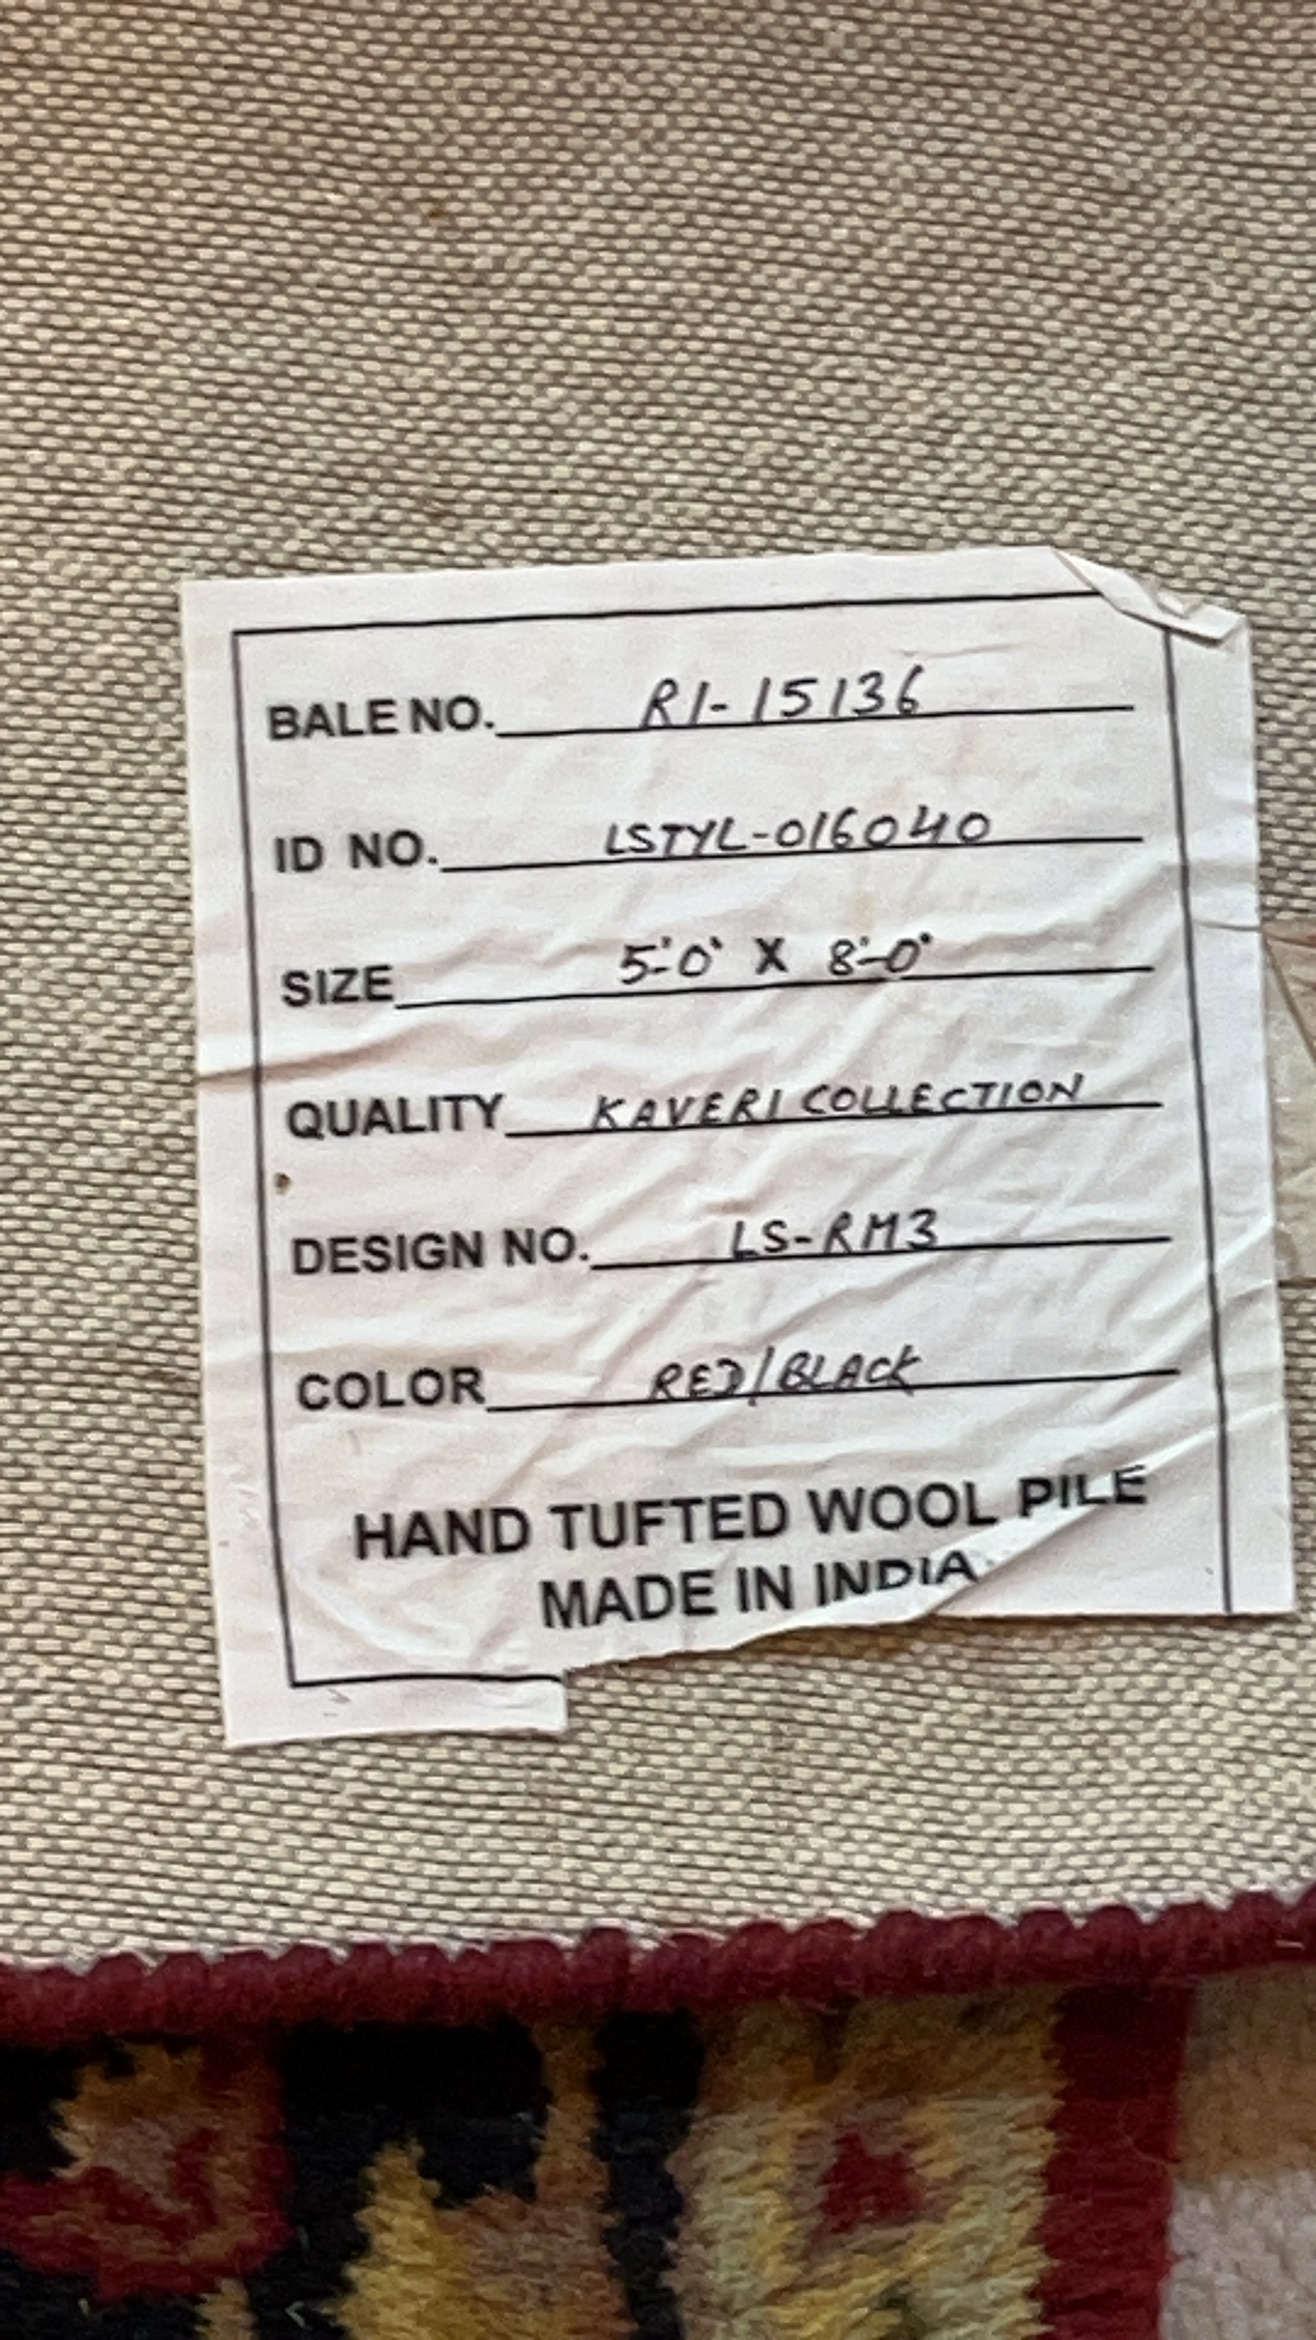 BALE NO. RI-15136
ID NO. LSTYL-016040
SIZE 5'-0" X 8'-0"
QUALITY KAVERI COLLECTION
DESIGN NO. LS-RM3
COLOR RED/BLACK
HAND TUFTED WOOL PILE
MADE IN INDIA